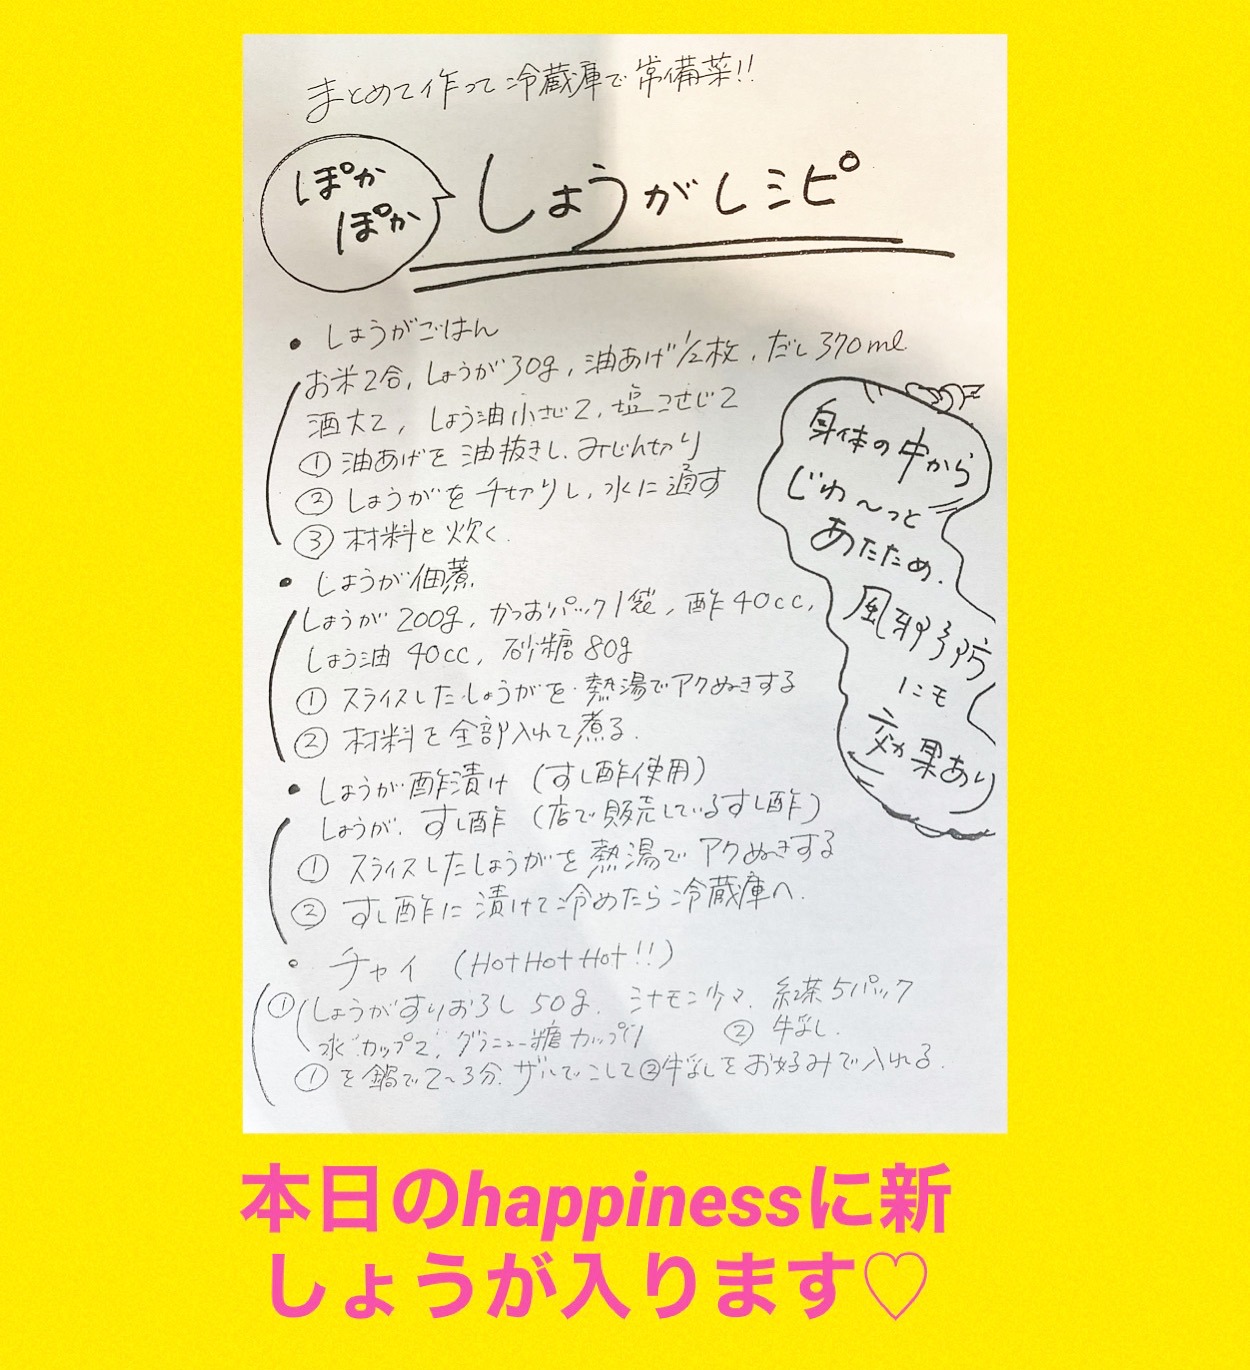 まとめて作って冷蔵庫で常備菜!!
ぽか
ぽか
しょうがレシピ
・しょうがごはん
お米2合, しょうが30g, 油あげ1/2枚, だし370ml
酒大2, しょう油小さじ2, 塩こさじ2
① 油あげを油抜きし、みじん切り
② しょうがを千切りし、水に通す
③ 材料と炊く.
身体の中から
じわ〜っと
あたため.
風邪予防
にも
効果あり
・しょうが佃煮
しょうが200g, かつおパック1袋, 酢40cc,
しょう油40cc, 砂糖80g
① スライスしたしょうがを熱湯でアクぬきする
② 材料を全部入れて煮る.
・しょうが酢漬け (すし酢使用)
しょうが. すし酢 (店で販売しているすし酢)
① スライスしたしょうがを熱湯でアクぬきする
② すし酢に漬けて冷めたら冷蔵庫へ.
・チャイ (HotHotHot!!)
① しょうがすりおろし50g. シナモン少々. 紅茶5パック
水カップ2, グラニュー糖カップ1 ② 牛乳.
①を鍋で2〜3分. ザルでこして②牛乳をお好みで入れる.
本日のhappinessに新
しょうが入ります♡